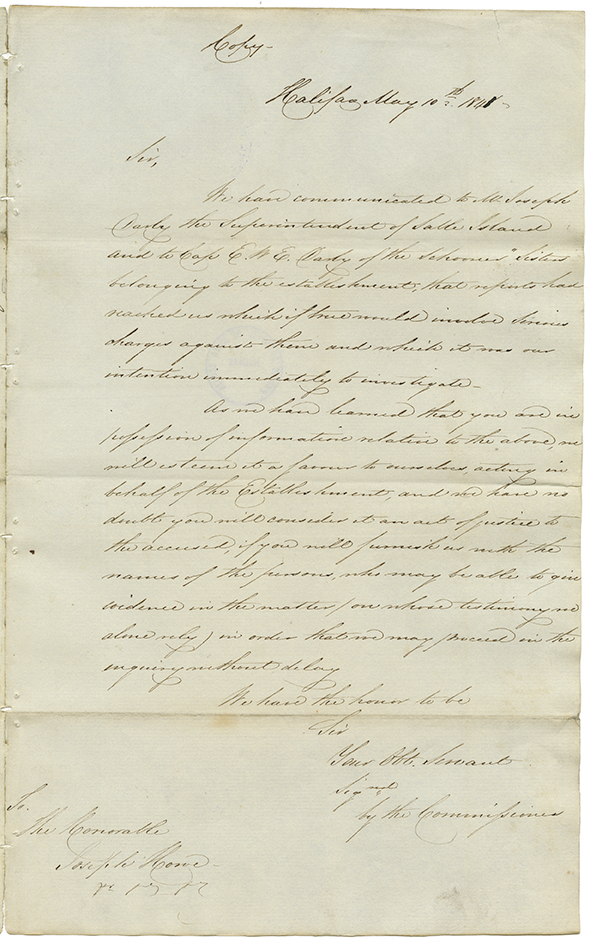 Copy-
Halifax May 10th 1848-
Sir,
We have communicated to Mr Joseph
Darby the Superintendent of Sable Island
and to Cap E. W. E. Darby of the Schooner "Sisters"
belonging to the establishment; that reports had
reached us which if true would involve serious
charges against them and which it was our
intention immediately to investigate-
As we have learned that you are in
possession of information relative to the above, we
will esteem it a favour to ourselves, acting in
behalf of the Establishment, and we have no
doubt you will consider it an act of justice to
the accused, if you will furnish us with the
names of the persons, who may be able to give
evidence in the matter (on whose testimony we
alone rely) in order that we may proceed in the
inquiry without delay
We have the honor to be
Sir
Your Obt. Servant
Signed
by the Commissioner
To.
The Honorable
Joseph Howe-